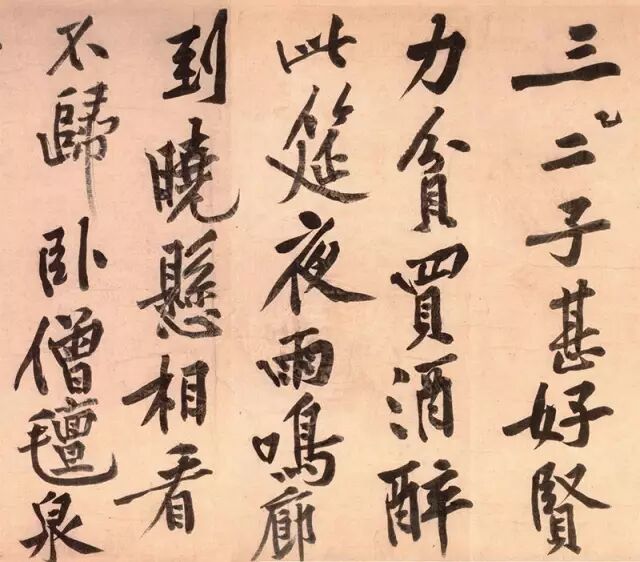 三二子甚好賢
力貧買酒醉
此筵夜雨鳴廊
到曉懸相看
不歸卧僧氊泉